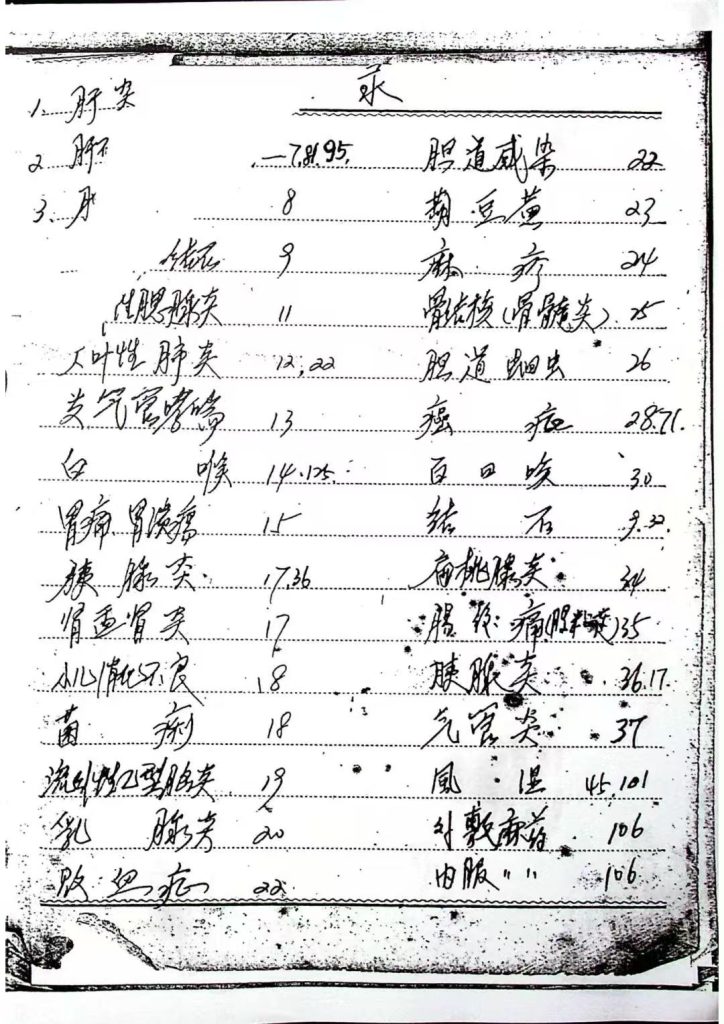 录
1. 肝炎
2. 肝 一7,81,95.
3. 8
结石 9
性腮腺炎 11
大叶性肺炎 12,22
支气管哮喘 13
白喉 14.125.
胃痛.胃溃疡 15
胰腺炎. 17,36
肾盂肾炎 17
小儿消化不良 18
菌痢 18
流行性乙型脑炎 19
乳腺炎 20
败血症 22
胆道感染 22
胡豆黄 23
麻疹 24
骨结核(骨髓炎). 25
胆道蛔虫 26
癌症 28.71.
百日咳 30
结石 9.32.
扁桃腺炎 34
肠绞痛 35
胰腺炎. 36.17.
气管炎 37
风湿 45,101
外敷麻药. 106
内服 〃 〃 106